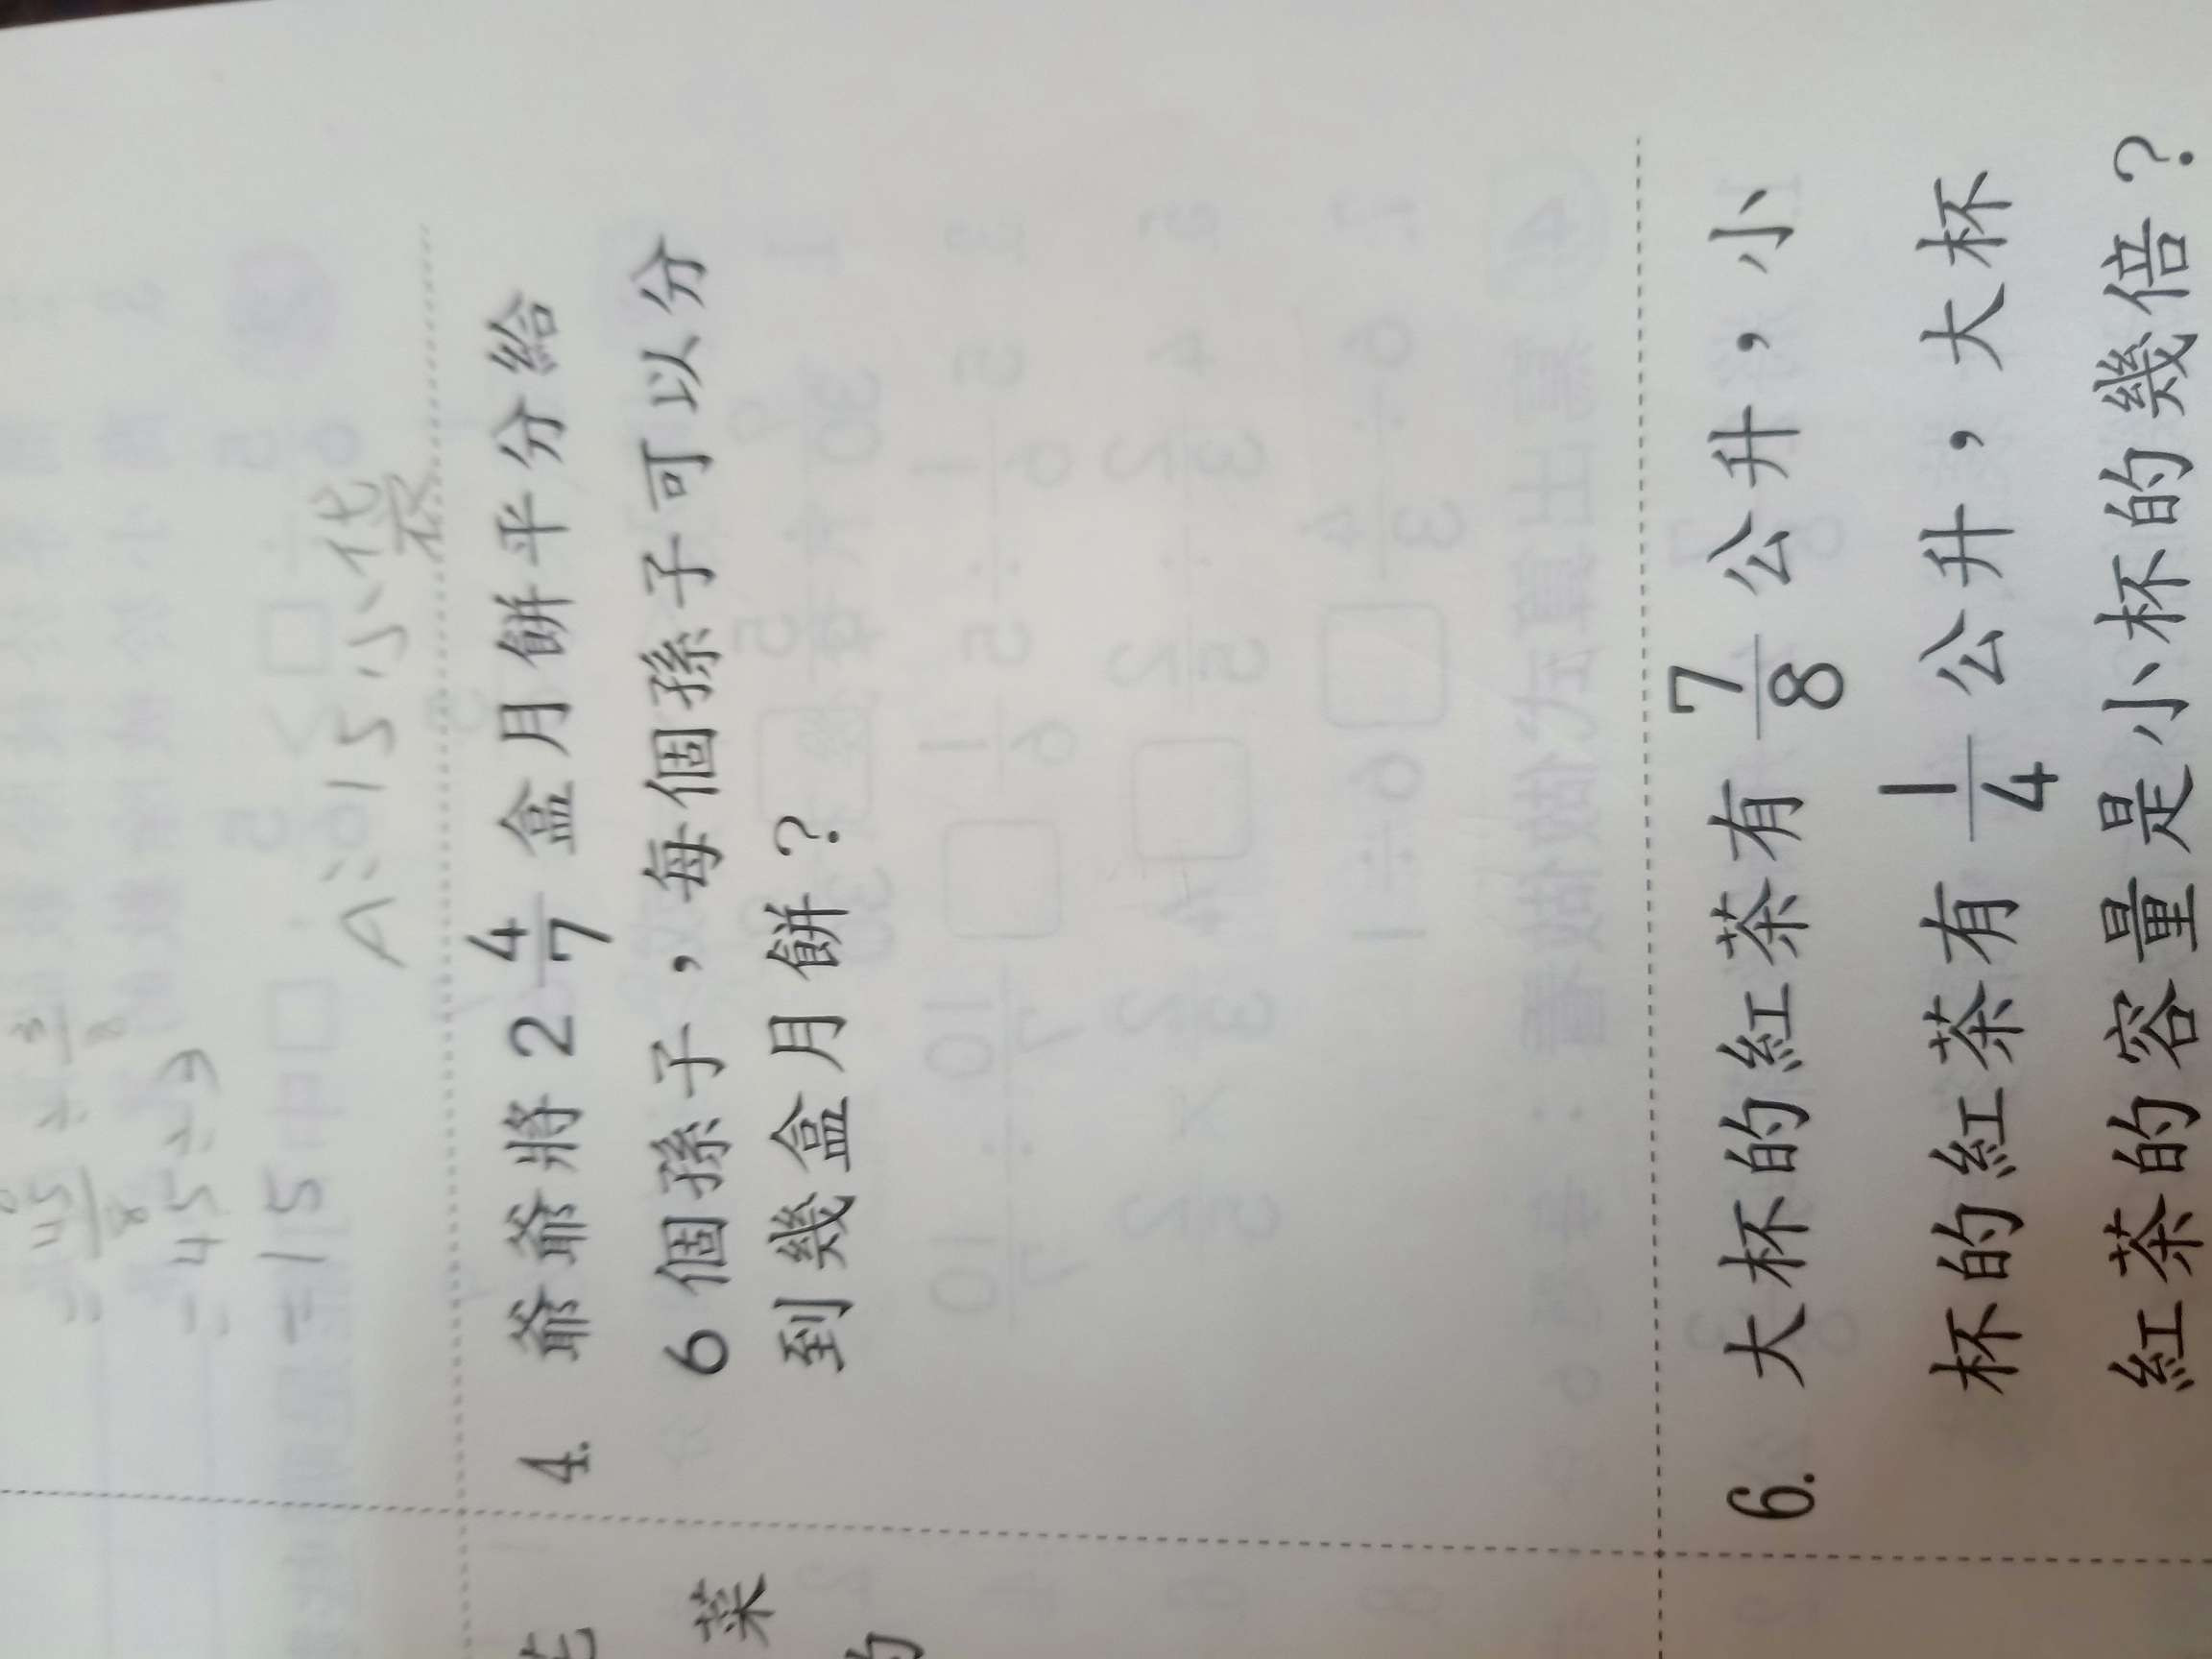 = 45/8 ÷ 3/8
= 45÷3
= 15
A：15小袋
4. 爺爺將 2 4/7 盒月餅平分給
6 個孫子，每個孫子可以分
到幾盒月餅？
菜
6. 大杯的紅茶有 7/8 公升，小
杯的紅茶有 1/4 公升，大杯
紅茶的容量是小杯的幾倍？